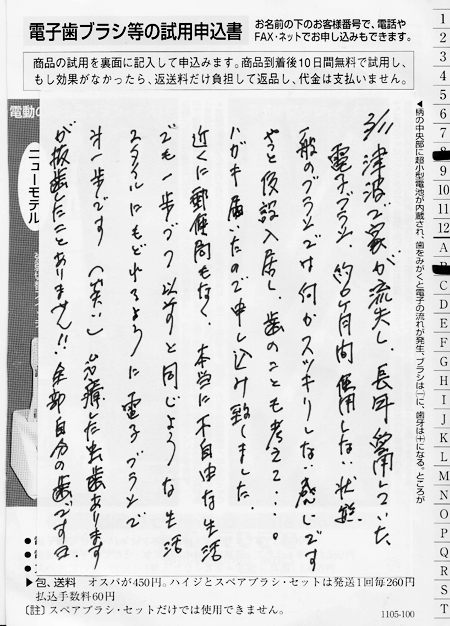 電子歯ブラシ等の試用申込書
お名前の下のお客様番号で、電話や
FAX・ネットでお申し込みもできます。
商品の試用を裏面に記入して申込みます。商品到着後10日間無料で試用し、
もし効果がなかったら、返送料だけ負担して返品し、代金は支払いません。
3/11 津波で家が流失し、長年愛用していた、
電子ブラシ、約6ケ月間使用しない状態
一般のブラシでは何かスッキリしない感じです
やっと仮設入居し、歯のことも考えて・・・。
ハガキ届いたので申し込み致しました。
近くに郵便局もなく、本当に不自由な生活
でも一歩づつ以前と同じような生活
スタイルにもどれるように電子ブラシで
才一歩です(笑い)治療した虫歯あります
が抜歯したことありません!!全部自分の歯です
◀柄の中央部に超小型電池が内蔵され、歯をみがくと電子の流れが発生、ブラシは⊟に、歯牙は⊞になる。ところが
電動の
ニューモデル
1
2
3
4
5
6
7
9
10
11
12
A
C
D
E
F
G
H
I
J
K
L
M
N
O
P
Q
R
S
T
▶包、送料 オスパが450円。ハイジとスペアブラシ・セットは発送1回毎260円
払込手数料60円
〔註〕スペアブラシ・セットだけでは使用できません。
1105-100